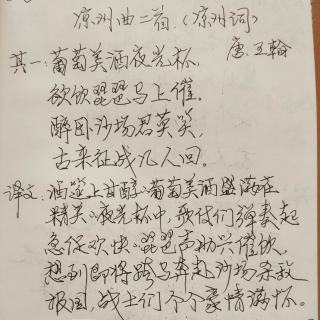 凉州曲二首（凉州词）
唐 王翰
其一：葡萄美酒夜光杯，
欲饮琵琶马上催。
醉卧沙场君莫笑，
古来征战几人回。
译文：酒筵上甘醇的葡萄美酒盛满在
精美的夜光杯中，歌伎们弹奏起
急促欢快的琵琶声助兴催饮，
想到即将跨马奔赴沙场杀敌
报国，战士们个个豪情满怀。